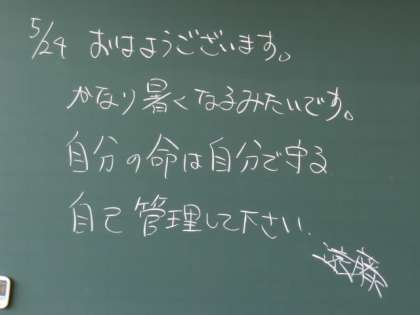 5/24 おはようございます。
かなり暑くなるみたいです。
自分の命は自分で守る
自己管理して下さい.
遠藤